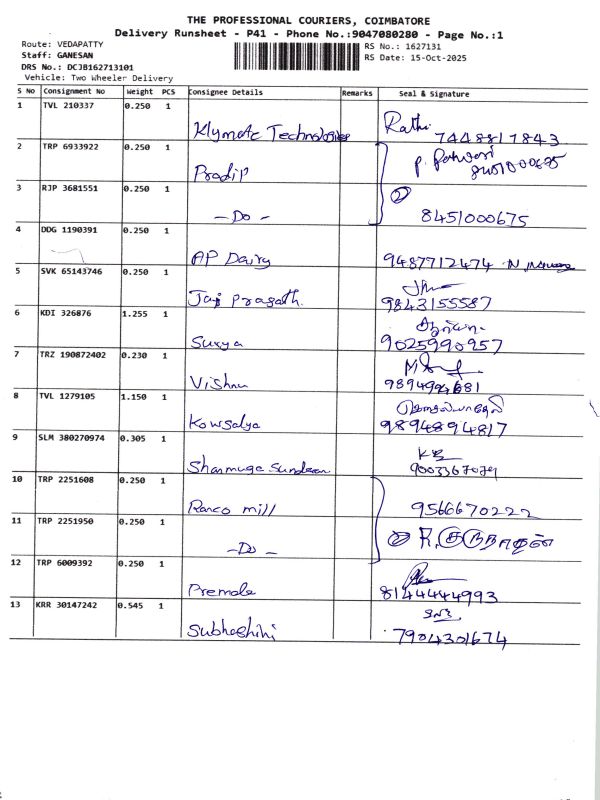 THE PROFESSIONAL COURIERS, COIMBATORE
Delivery Runsheet - P41 - Phone No.:9047080280 - Page No.:1
Route: VEDAPATTY
RS No.: 1627131
Staff: GANESAN
RS Date: 15-Oct-2025
DRS No.: DCJB162713101
Vehicle: Two Wheeler Delivery
S No Consignment No Weight PCS Consignee Details Remarks Seal & Signature
1 TVL 210337 0.250 1
Klymatic Technologies Rathi 7448817843
2 TRP 6933922 0.250 1
Pradip 8451000675
3 RJP 3681551 0.250 1
- Do - 2 8451000675
4 DDG 1190391 0.250 1
AP Dairy 9487712474
5 SVK 65143746 0.250 1
Jai Prasath. 9843155587
6 KDI 326876 1.255 1
Surya 9025990957
7 TRZ 190872402 0.230 1
Vishnu
8 TVL 1279105 1.150 1
Kowsalya 9894894817
9 SLM 380270974 0.305 1
Shanmuga Sundaram
10 TRP 2251608 0.250 1
Ranco mill 9566670222
11 TRP 2251950 0.250 1
- Do - 2
12 TRP 6009392 0.250 1
Premala 8144444993
13 KRR 30147242 0.545 1
Subhashini 7904301674